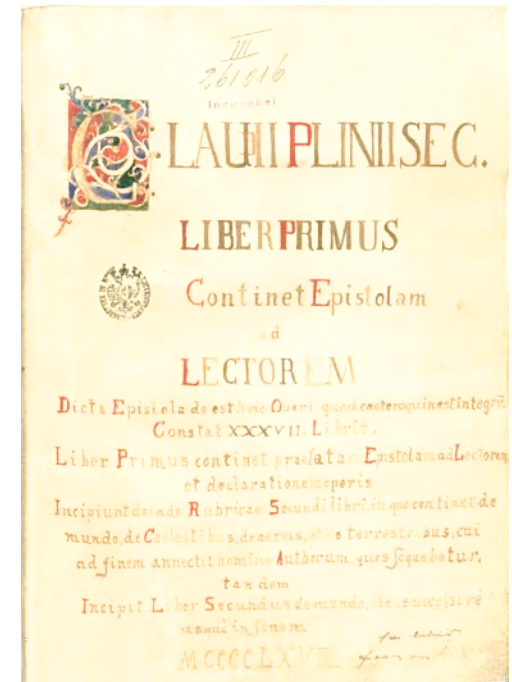 III
261016
Incunabel
CLAUDII PLINII SEC.
LIBER PRIMUS
Continet Epistolam
ad
LECTOREM
Dicta Epistola de est huic Operi quod caeteroquin est integrū.
Constat XXXVII. Libris.
Liber Primus continet praefatam Epistolam ad Lectorem
et declarationem operis
Incipiunt deinde Rubricae Secundi libri, in quo continet de
mundo, de Coelestibus, de aereis, et de terrestribus, cui
ad finem annectit nomina Autherum, ques sequebatur.
tandem
Incipit Liber Secundus de mundo, etc. successive
usque in finem
MCCCCLXVIII